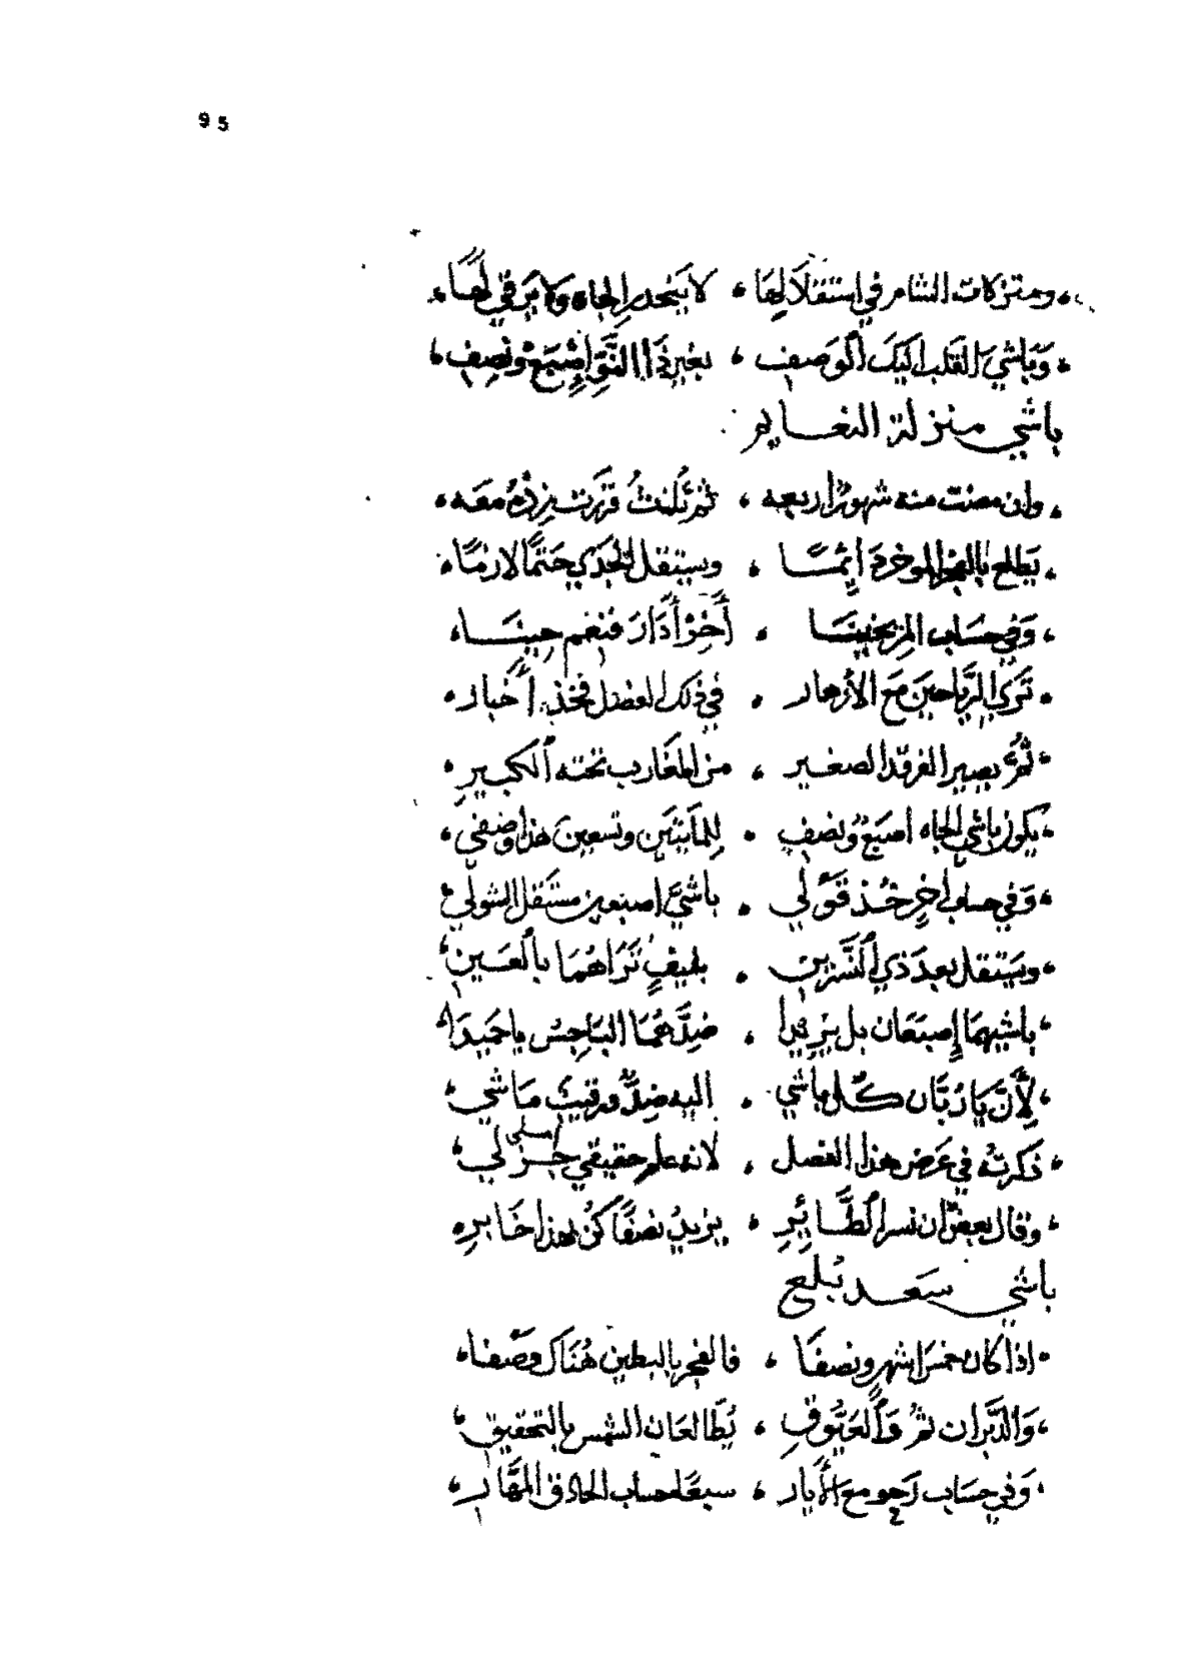 95
، ومتزكات الشام في استقلالها ، لا ينحدر الجاه ولا يرقى لها ،
، وباشي القلب اليك الوصف ، بغير ذا النو إصبع ونصف ،
باشي منزلة النعايم
، وان مضت منه شهورا اربعه ، ثم ثلث قررت بزده معه ،
، يطلع بالفجر الموخر دايما ، ويستقل الجدي حتما لازما ،
، وفي حساب المريخيينا ، أخر أدار فنغم حينا ،
، ترى الرياحين مع الأزهار ، في ذلك الفضل فخذ أخبار ،
، ثم يصير الفرقد الصغير ، من المغارب تحته الكبير ،
، يكون باشي الجاه اصبع ونصف ، للمأيتين وتسعين هذا وصفي ،
، وفي حساب أخر خذ قولي ، باشي اصبعين مستقل الشولي ،
، ويستقل بعد ذي النسرين ، بليف تراهما بالعين ،
، باشيهما إصبعان بل يزيدا ، ضدهما الباجس يا حميدا ،
، لأن يا ربان كل باشي ، اليه ضد ورقيب ماشي ،
، ذكرته في عرض هذا الفصل ، لانه علم حقيقي جزلي ،
اصلي
، وقال بعض ان نسر الطاير ، يزيد نصفا كن لهذا خابره
باشي سعد بلع
، اذا كان خمس اشهر ونصفا ، فالفجر بالبطين هناك وصفا ،
، والدبران ثم والعيوق ، يطالعان الشمس بالتحقيق ،
، وفي حساب رجو مع الأيار ، سبعا حساب الحاذق المهار ،